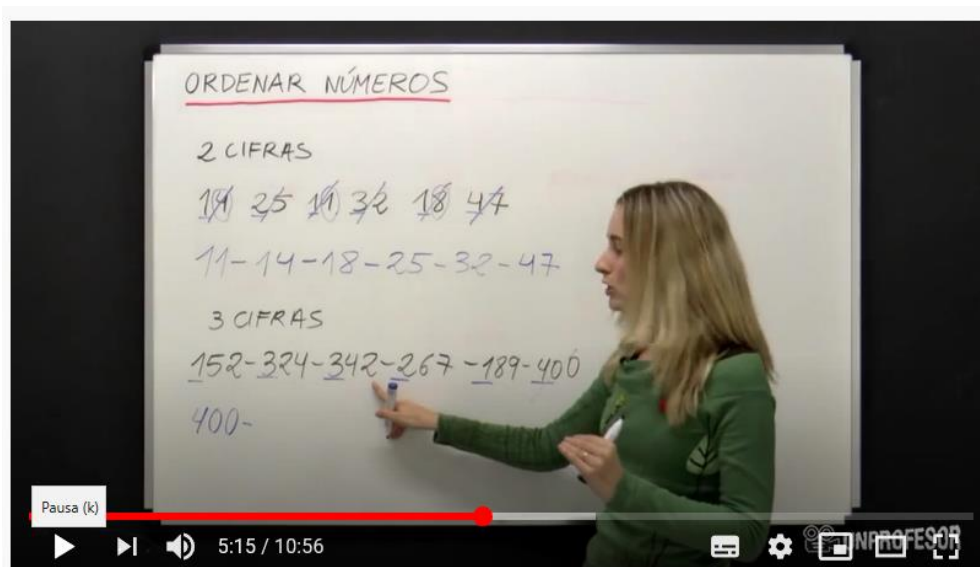 ORDENAR NÚMEROS
2 CIFRAS
14 25 11 32 18 47
11-14-18-25-32-47
3 CIFRAS
152-324-342-267-189-400
400-
Pausa (k)
5:15 / 10:56
UNPROFESOR